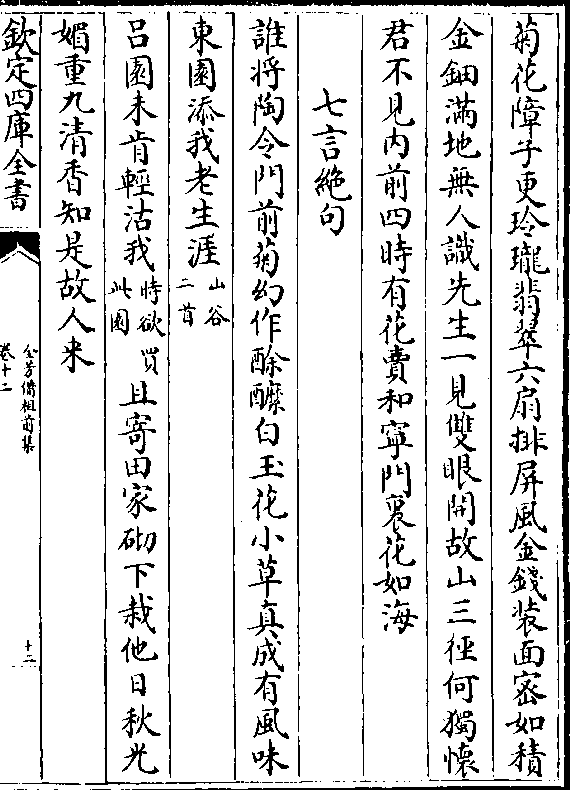 菊花障子更玲瓏翡翠六扇排屏風金錢裝面密如積
金鈿滿地無人識先生一見雙眼開故山三徑何獨懷
君不見内前四時有花賣和寧門裏花如海
七言絶句
誰將陶令門前菊幻作酴醿白玉花小草真成有風味
東園添我老生涯山谷二首
吕園未肯輕沽我時欲買此園且寄田家砌下栽他日秋光
媚重九清香知是故人来
欽定四庫全書
全芳備祖前集
卷十二
十二